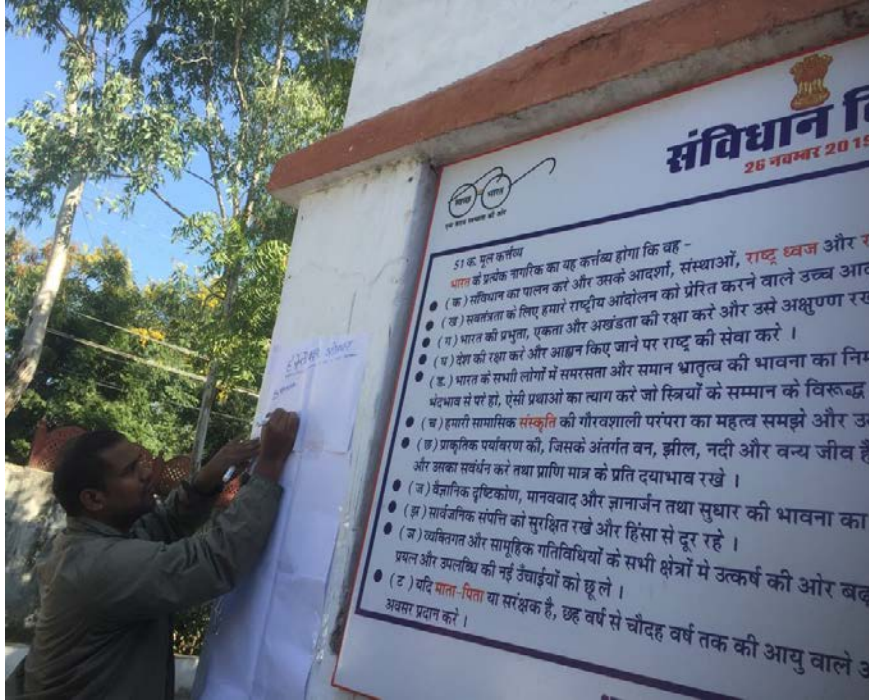 संविधान
26 नवम्बर 2019
स्वच्छ भारत
एक कदम स्वच्छता की ओर
51 क. मूल कर्त्तव्य
भारत के प्रत्येक नागरिक का यह कर्त्तव्य होगा कि वह -
(क) संविधान का पालन करे और उसके आदर्शो, संस्थाओं, राष्ट्र ध्वज और
(ख) सवतंत्रता के लिए हमारे राष्ट्रीय आंदोलन को प्रेरित करने वाले उच्च
(ग) भारत की प्रभुता, एकता और अखंडता की रक्षा करे और उसे अक्षुण्ण
(घ) देश की रक्षा करे और आह्वान किए जाने पर राष्ट्र की सेवा करे ।
(ड.) भारत के सभी लोगों में समरसता और समान भ्रातृत्व की भावना का
भेदभाव से परे हो, ऐसी प्रथाओं का त्याग करे जो स्त्रियों के सम्मान के विरूद्ध
(च) हमारी सामासिक संस्कृति की गौरवशाली परंपरा का महत्व समझे और
(छ) प्राकृतिक पर्यावरण की, जिसके अंतर्गत वन, झील, नदी और वन्य जीव
और उसका सवंर्धन करे तथा प्राणि मात्र के प्रति दयाभाव रखे ।
(ज) वैज्ञानिक दृष्टिकोण, मानववाद और ज्ञानार्जन तथा सुधार की भावना का
(झ) सार्वजनिक संपत्ति को सुरक्षित रखे और हिंसा से दूर रहे ।
(ञ) व्यक्तिगत और सामूहिक गतिविधियों के सभी क्षेत्रों मे उत्कर्ष की ओर
प्रयत्न और उपलब्धि की नई उँचाईयों को छू ले ।
(ट) यदि माता-पिता या सरंक्षक है, छह वर्ष से चौदह वर्ष तक की आयु वाले
अवसर प्रदान करे ।